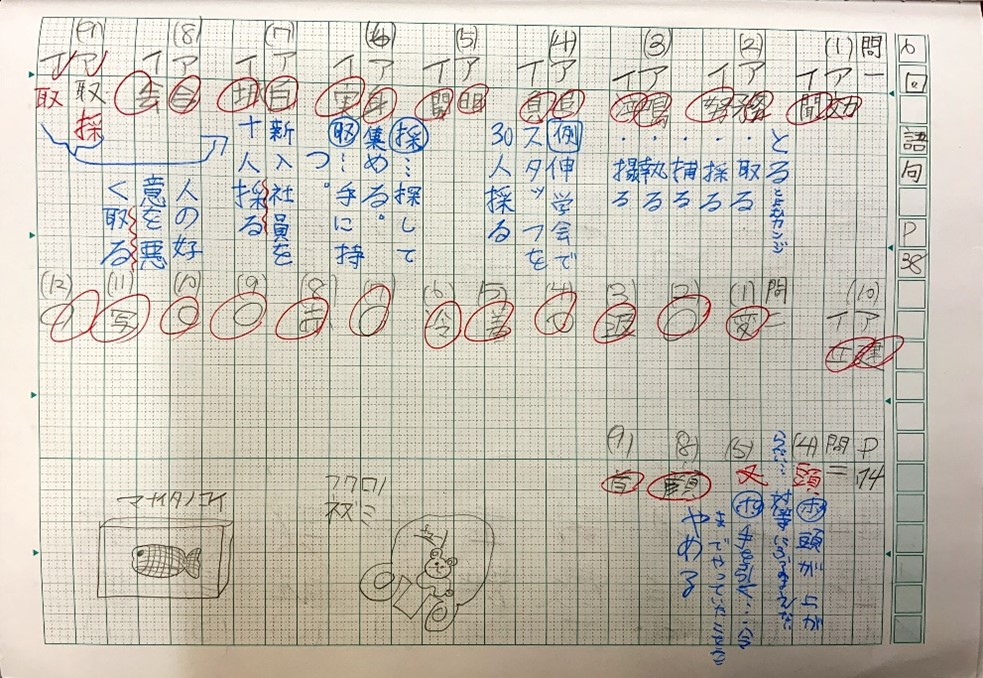 6
回
語句
P
38
問一
(1)
ア 効
イ 聞
(2)
ア 務
イ 努
(3)
ア 鳴
イ
(4)
ア
イ 真
(5)
ア 明
イ 開
(6)
ア
イ 実
(7)
ア 自
イ
(8)
ア 自
イ 会
(9)
ア 取 採
イ 取
(10)
ア 建
イ
とる
・取る
・採る
・捕る
・執る
・撮る
例 伸学会で
スタッフを
30人採る
採…探して
集める。
取…手に持
つ。
新入社員を
十人採る
人の好
意を悪
く取る
問二
(1) 変
(2) ○
(3) 返
(4)
(5) 差
(6) 令
(7) ○
(8)
(9) ○
(10) ○
(11) 写
(12)
P
74
問二
(4) 頭
頭が上が
らない…対等
(5)
手を引く…今
までやっていたことを
やめる
(8) 額
(9) 首
フクロノ
ネズミ
マナイタノコイ